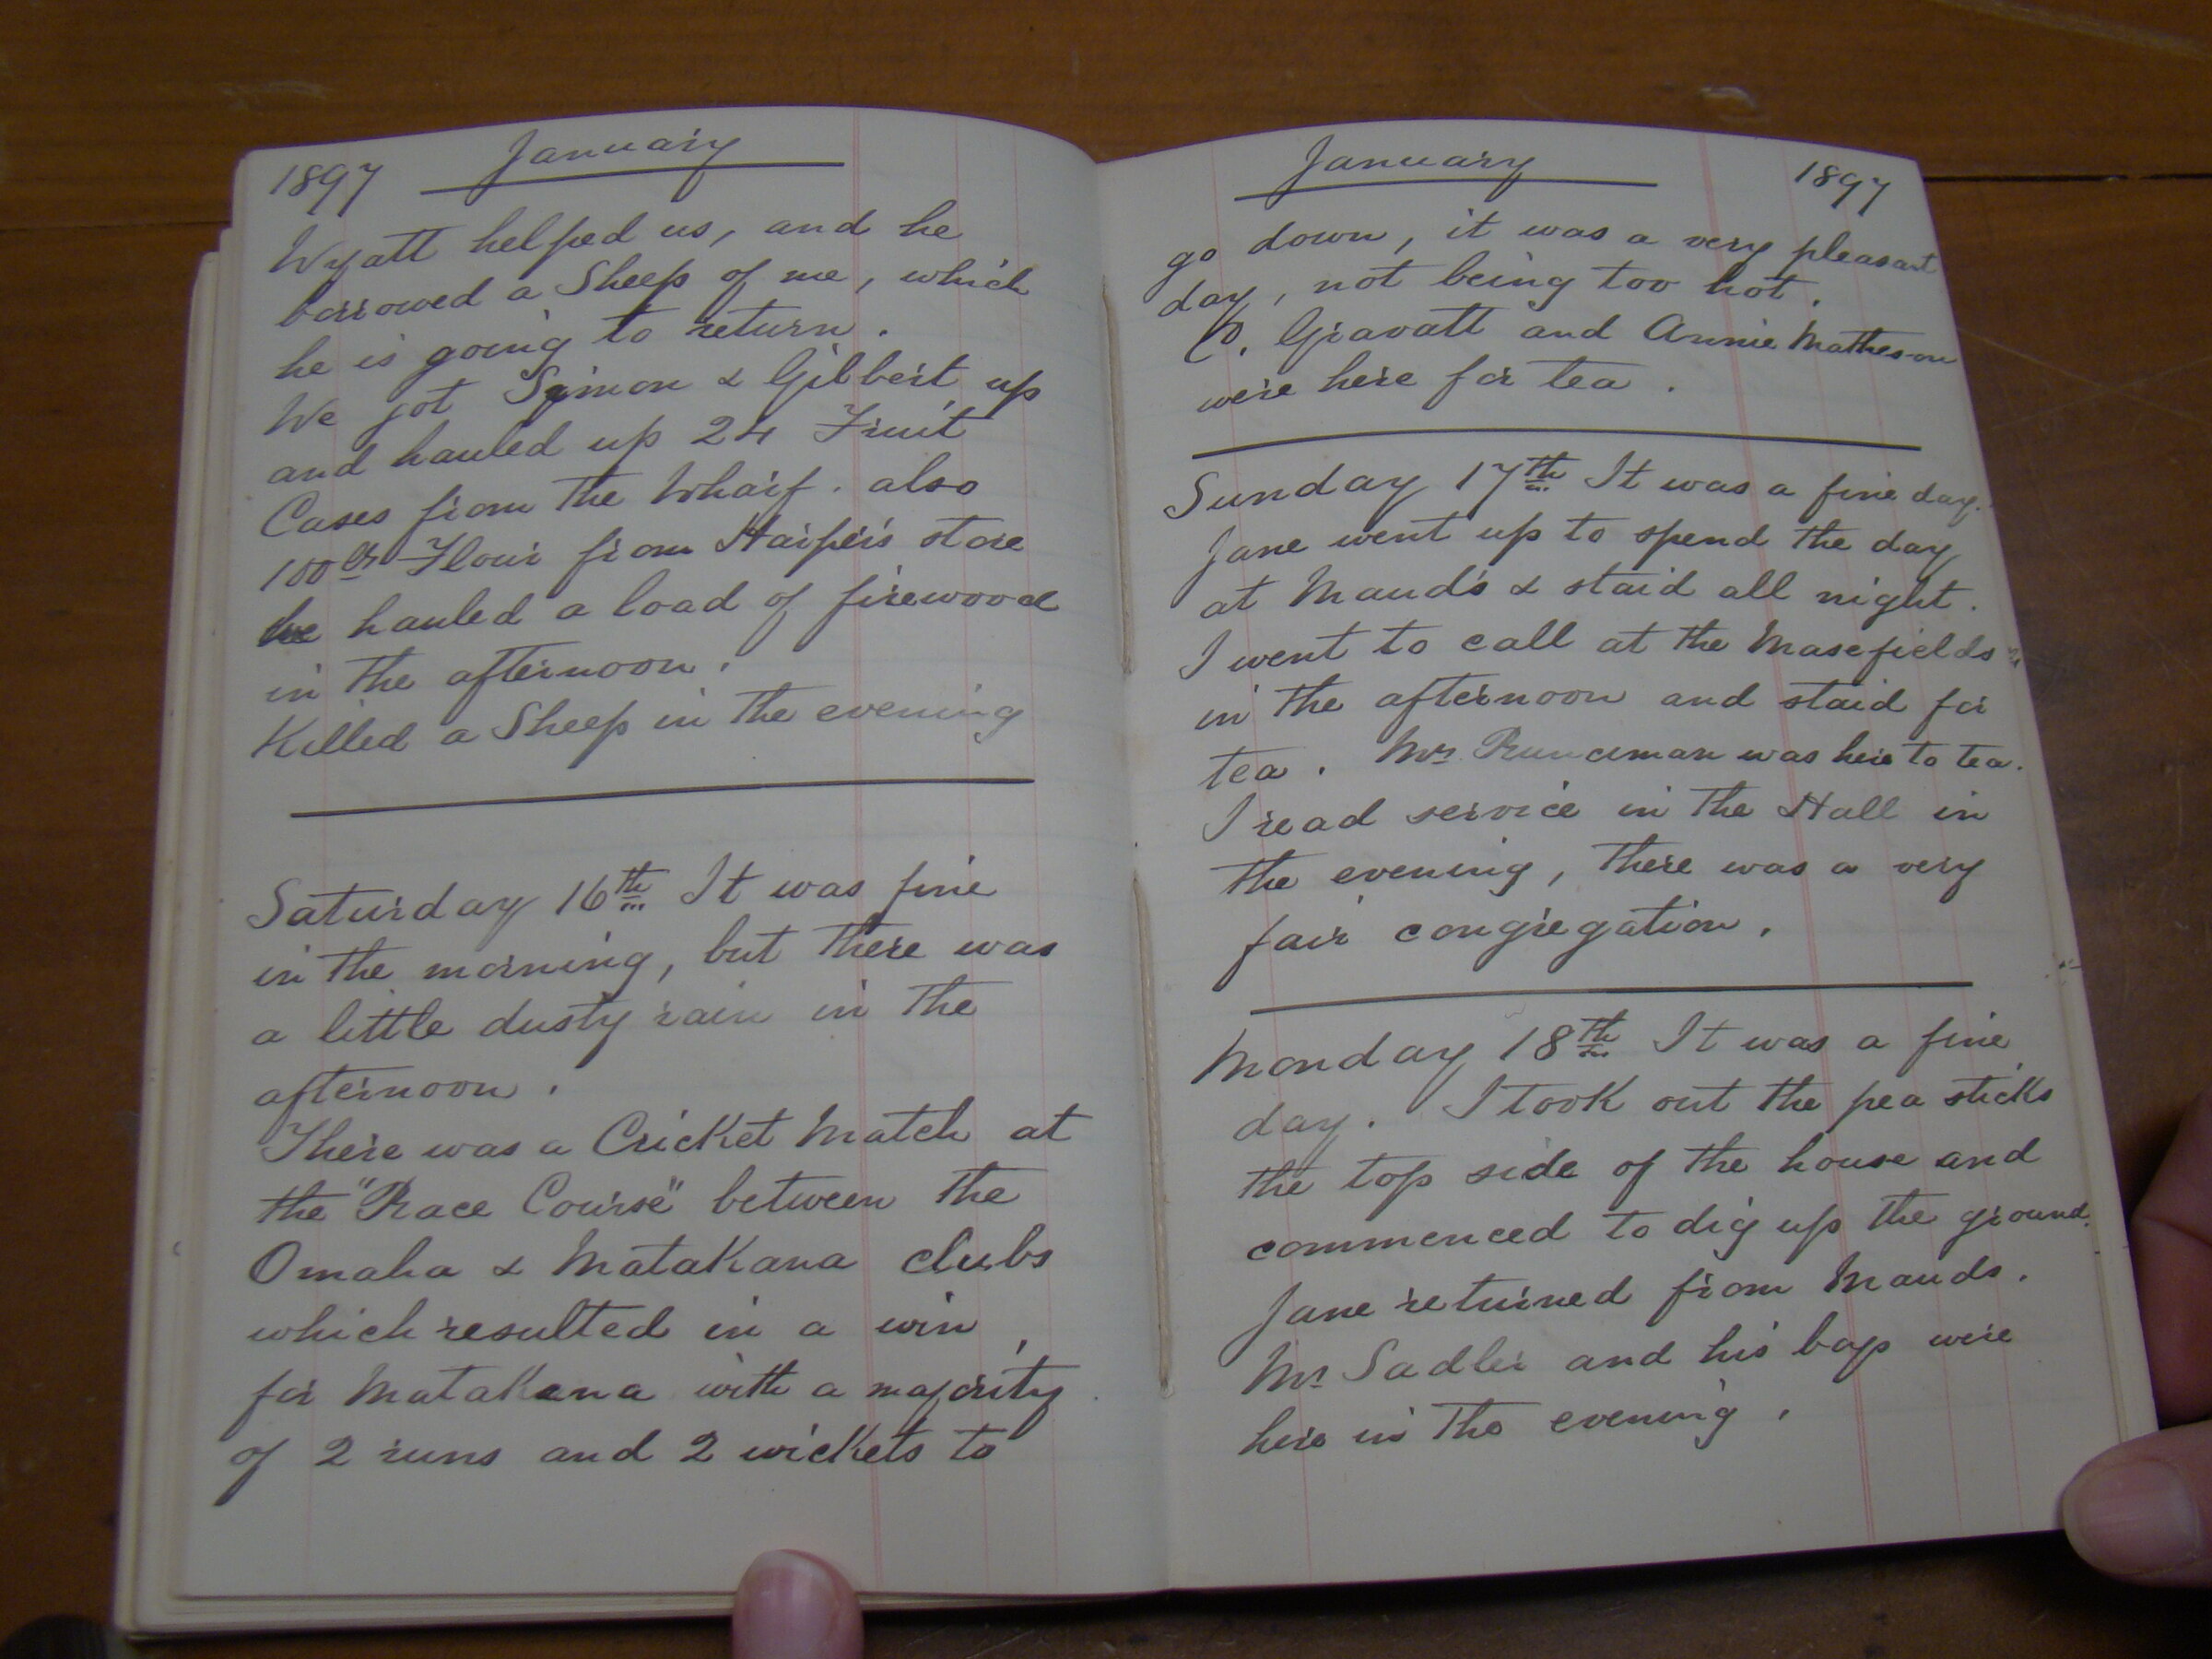 1897 January
Wyatt helped us, and he
borrowed a Sheep of me, which
he is going to return.
We got Simon & Gilbert up
and hauled up 24 Fruit
Cases from the Wharf. also
100 lbs Flour from Harper's store
We hauled a load of firewood
in the afternoon.
Killed a Sheep in the evening
Saturday 16th It was fine
in the morning, but there was
a little dusty rain in the
afternoon.
There was a Cricket Match at
the "Race Course" between the
Omaha & Matakana clubs
which resulted in a win,
for Matakana with a majority
of 2 runs and 2 wickets to
January 1897
go down, it was a very pleasant
day, not being too hot.
Gravatt and Annie Matheson
were here for tea.
Sunday 17th It was a fine day.
Jane went up to spend the day
at Maud's & staid all night.
I went to call at the Masefields
in the afternoon and staid for
tea. Mr Runciman was here to tea.
I read service in the Hall in
the evening, there was a very
fair congregation.
Monday 18th It was a fine
day. I took out the pea sticks
the top side of the house and
commenced to dig up the ground.
Jane returned from Mauds.
Mr Sadler and his boys were
here in the evening.